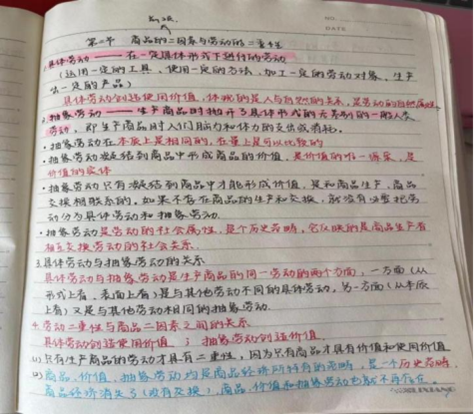 第二节 商品的二因素与劳动的二重性
1.具体劳动——在一定具体形式下进行的劳动
(运用一定的工具、使用一定的方法、加工一定的劳动对象、生产出一定的产品)
具体劳动创造使用价值,体现的是人与自然的关系,是劳动的自然属性
2.抽象劳动——生产商品时抛开了具体形式的无差别的一般人类
劳动,即生产商品时人们脑力和体力的支出或消耗。
·抽象劳动在本质上是相同的,在量上是可以比较的
·抽象劳动凝结到商品中形成商品的价值,是价值的唯一源泉,是
价值的实体
·抽象劳动只有凝结到商品中才能形成价值,是和商品生产、商品
交换相联系的。如果不存在商品的生产和交换,就没有必要把劳
动分为具体劳动和抽象劳动
·抽象劳动是劳动的社会属性,是个历史范畴,它反映的是商品生产者
相互交换劳动的社会关系
3.具体劳动与抽象劳动的关系
具体劳动与抽象劳动是生产商品的同一劳动的两个方面,一方面(从
形式上看,表面上看)是与其他劳动不同的具体劳动,另一方面(从本质
上看)又是与其他劳动相同的抽象劳动.
4.劳动二重性与商品二因素之间的关系
具体劳动创造使用价值;抽象劳动创造价值
(1)只有生产商品的劳动才具有二重性,因为只有商品才具有价值和使用价值
(2)商品、价值、抽象劳动均是商品经济所特有的范畴,是一个历史范畴
商品经济消失了(没有交换),商品、价值和抽象劳动也就不再存在
NO.
DATE